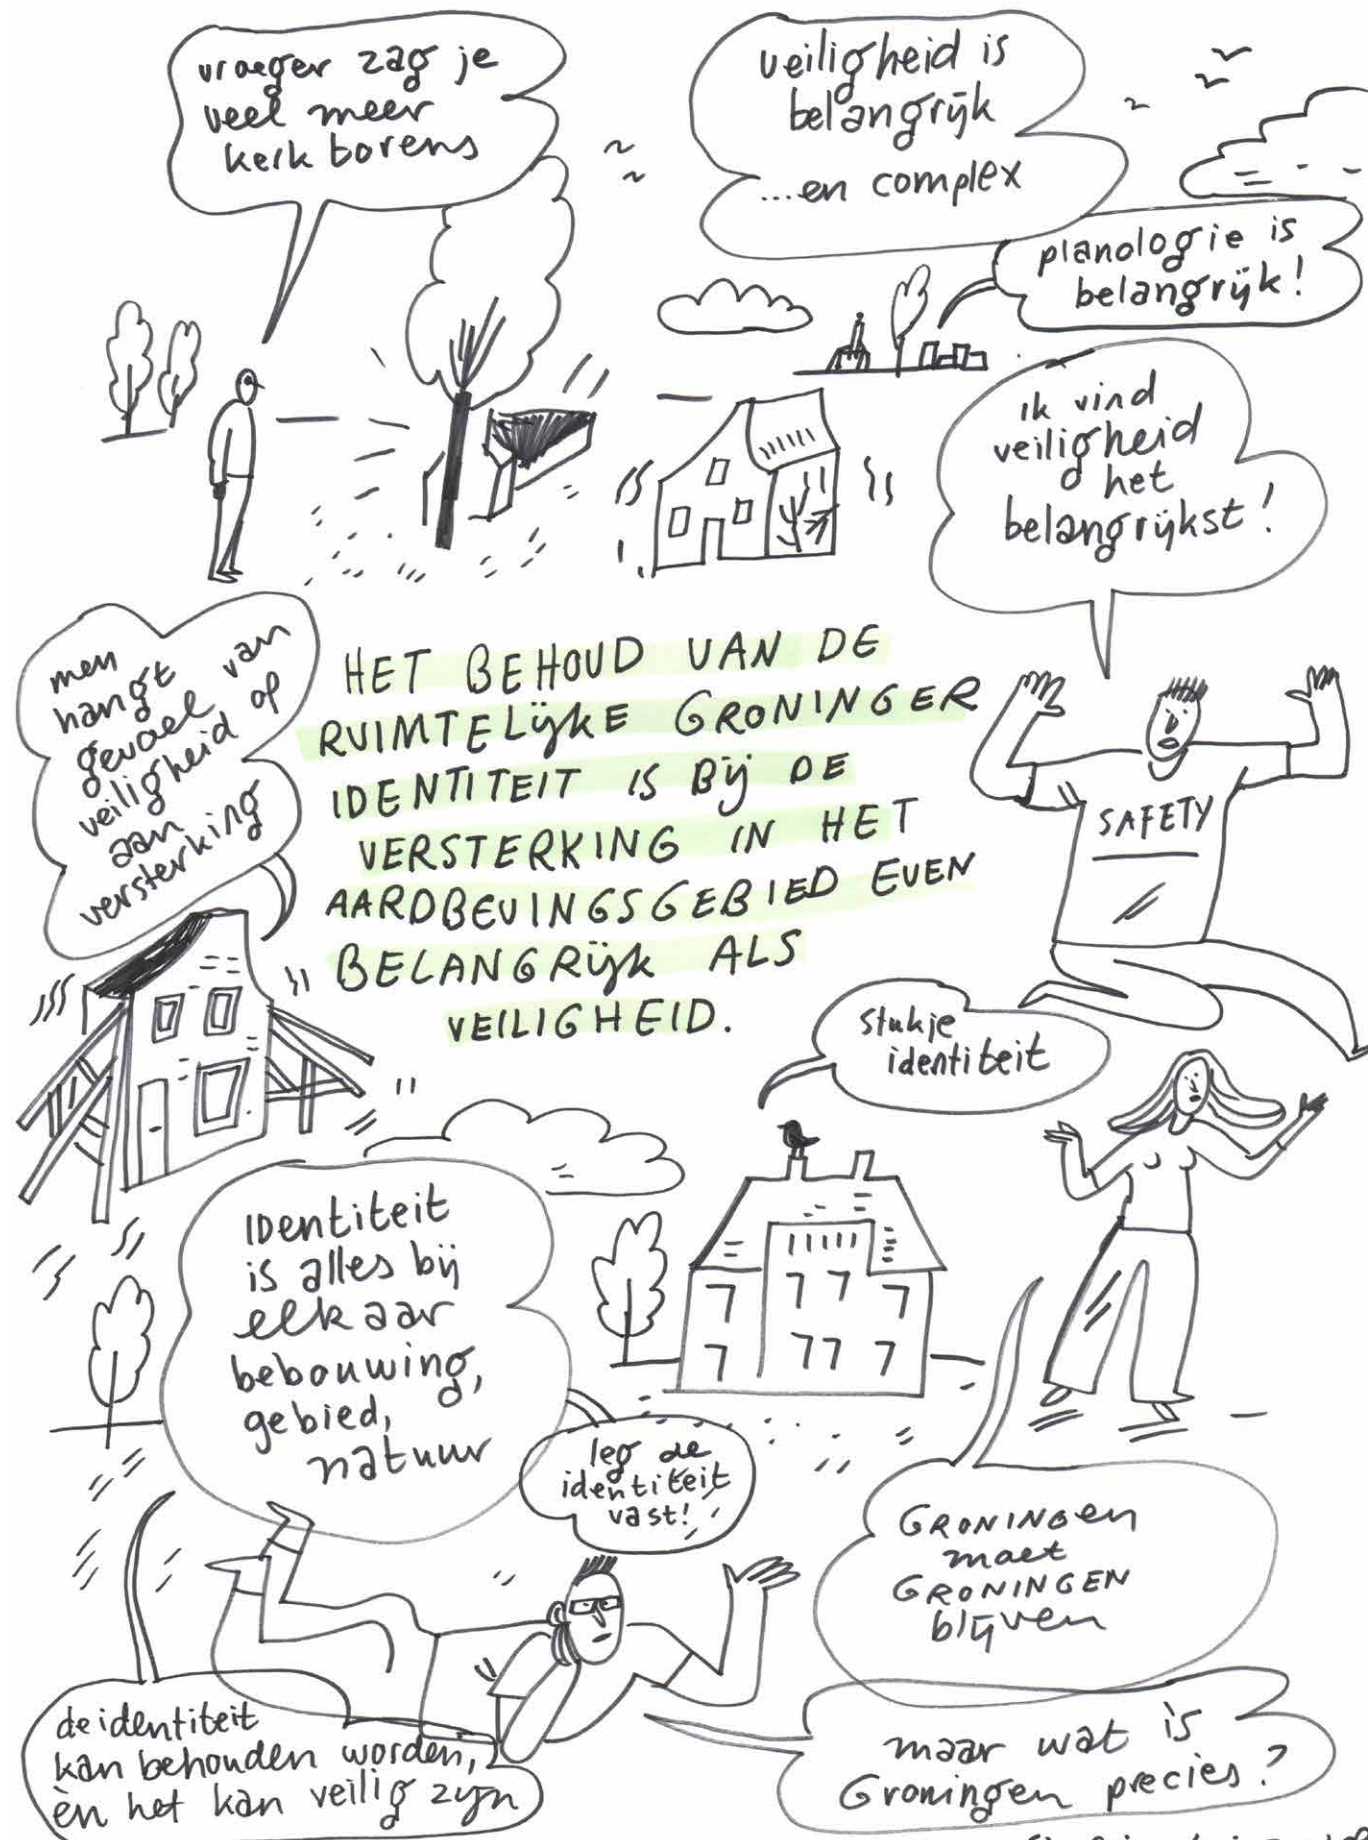 vroeger zag je
veel meer
kerktorens
veiligheid is
belangrijk
...en complex
planologie is
belangrijk!
ik vind
veiligheid
het
belangrijkst!
men
hangt
gevoel van
veiligheid op
aan
versterking
HET BEHOUD VAN DE
RUIMTELijkE GRONINGER
IDENTITEIT IS Bij DE
VERSTERKING IN HET
AARDBEVINGSGEBIED EVEN
BELANGRijk ALS
VEILIGHEID.
SAFETY
stukje
identiteit
IDentiteit
is alles bij
elkaar
bebouwing,
gebied,
natuur
leg de
identiteit
vast!
GRONINGen
moet
GRONINGEN
blijven
de identiteit
kan behouden worden,
èn het kan veilig zijn
maar wat is
Groningen precies?